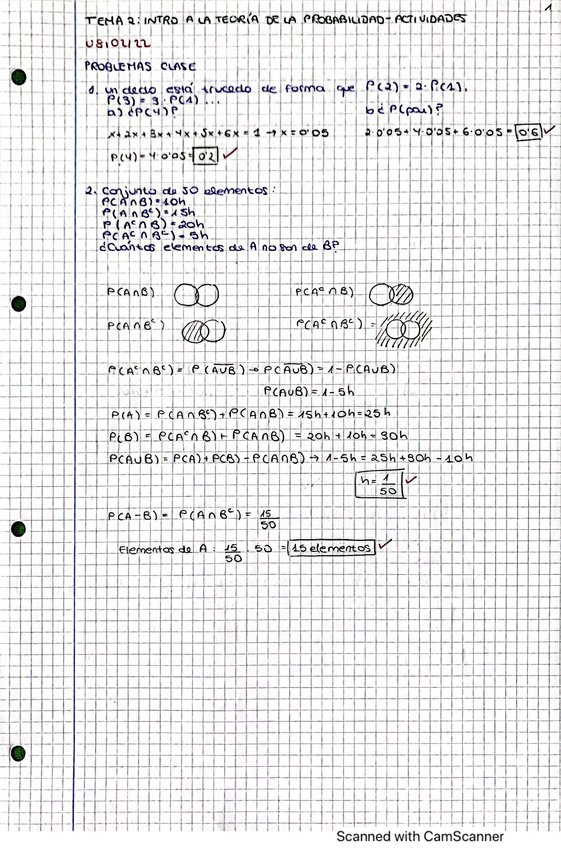 1
TEMA 2: INTRO A LA TEORÍA DE LA PROBABILIDAD - ACTIVIDADES
08/02/22
PROBLEMAS CLASE
1. Un dado está trucado de forma que P(2) = 2·P(1),
P(3) = 3·P(1) ...
a) ¿P(4)? b ¿P(par)?
x+2x+3x+4x+5x+6x = 1 → x = 0'05 2·0'05 + 4·0'05 + 6·0'05 = 0'6 ✓
P(4) = 4·0'05 = 0'2 ✓
2. Conjunto de 50 elementos:
P(A∩B) = 10h
P(A∩Bᶜ) = 15h
P(Aᶜ∩B) = 20h
P(Aᶜ∩Bᶜ) = 5h
¿Cuántos elementos de A no son de B?
P(A∩B) P(Aᶜ∩B)
P(A∩Bᶜ) P(Aᶜ∩Bᶜ) =
P(Aᶜ∩Bᶜ) = P(A̅U̅B̅) → P(A̅U̅B̅) = 1 - P(AUB)
P(AUB) = 1 - 5h
P(A) = P(A∩Bᶜ) + P(A∩B) = 15h + 10h = 25h
P(B) = P(Aᶜ∩B) + P(A∩B) = 20h + 10h = 30h
P(AUB) = P(A) + P(B) - P(A∩B) → 1 - 5h = 25h + 30h - 10h
h = 1/50 ✓
P(A-B) = P(A∩Bᶜ) = 15/50
Elementos de A: 15/50 · 50 = 15 elementos ✓
Scanned with CamScanner